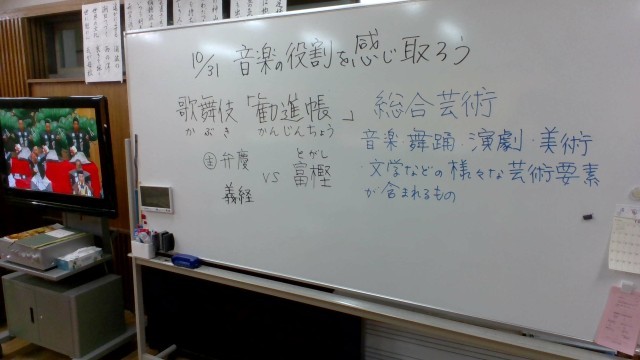 10/31 音楽の役割を感じ取ろう
歌舞伎「勧進帳」
かぶき かんじんちょう
主 弁慶
義経
vs
とがし
富樫
総合芸術
音楽・舞踊・演劇・美術・
文学などの様々な芸術要素
が含まれるもの